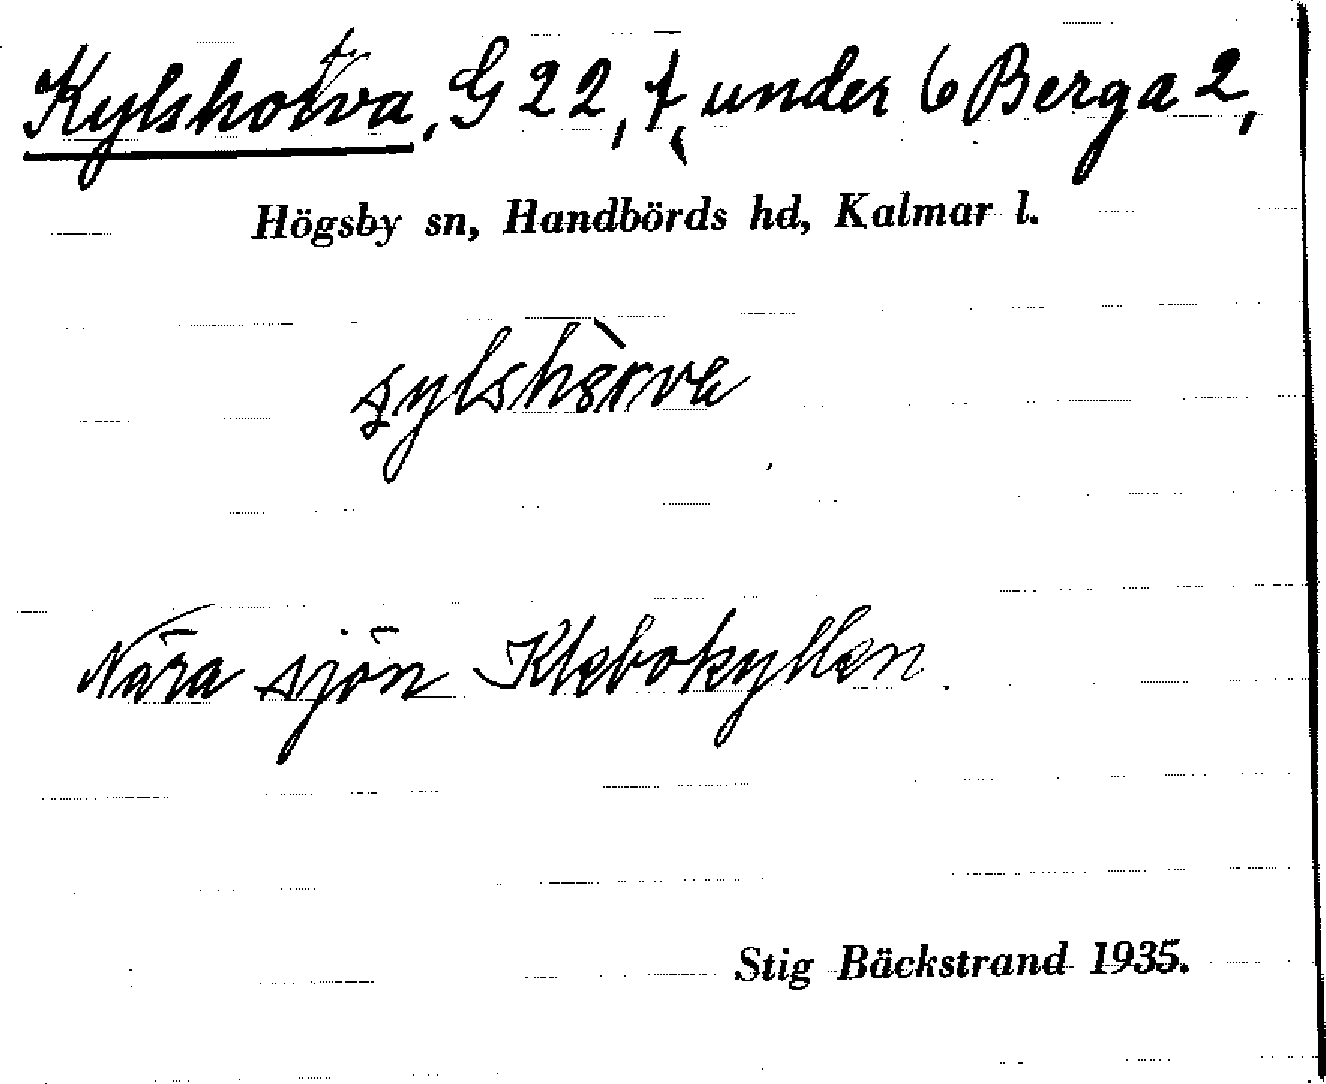 Kylshotva, G 22, t, under 6 Berga 2,
Högsby sn, Handbörds hd, Kalmar l.
Nära sjön Klebokyllen.
Stig Bäckstrand 1935.